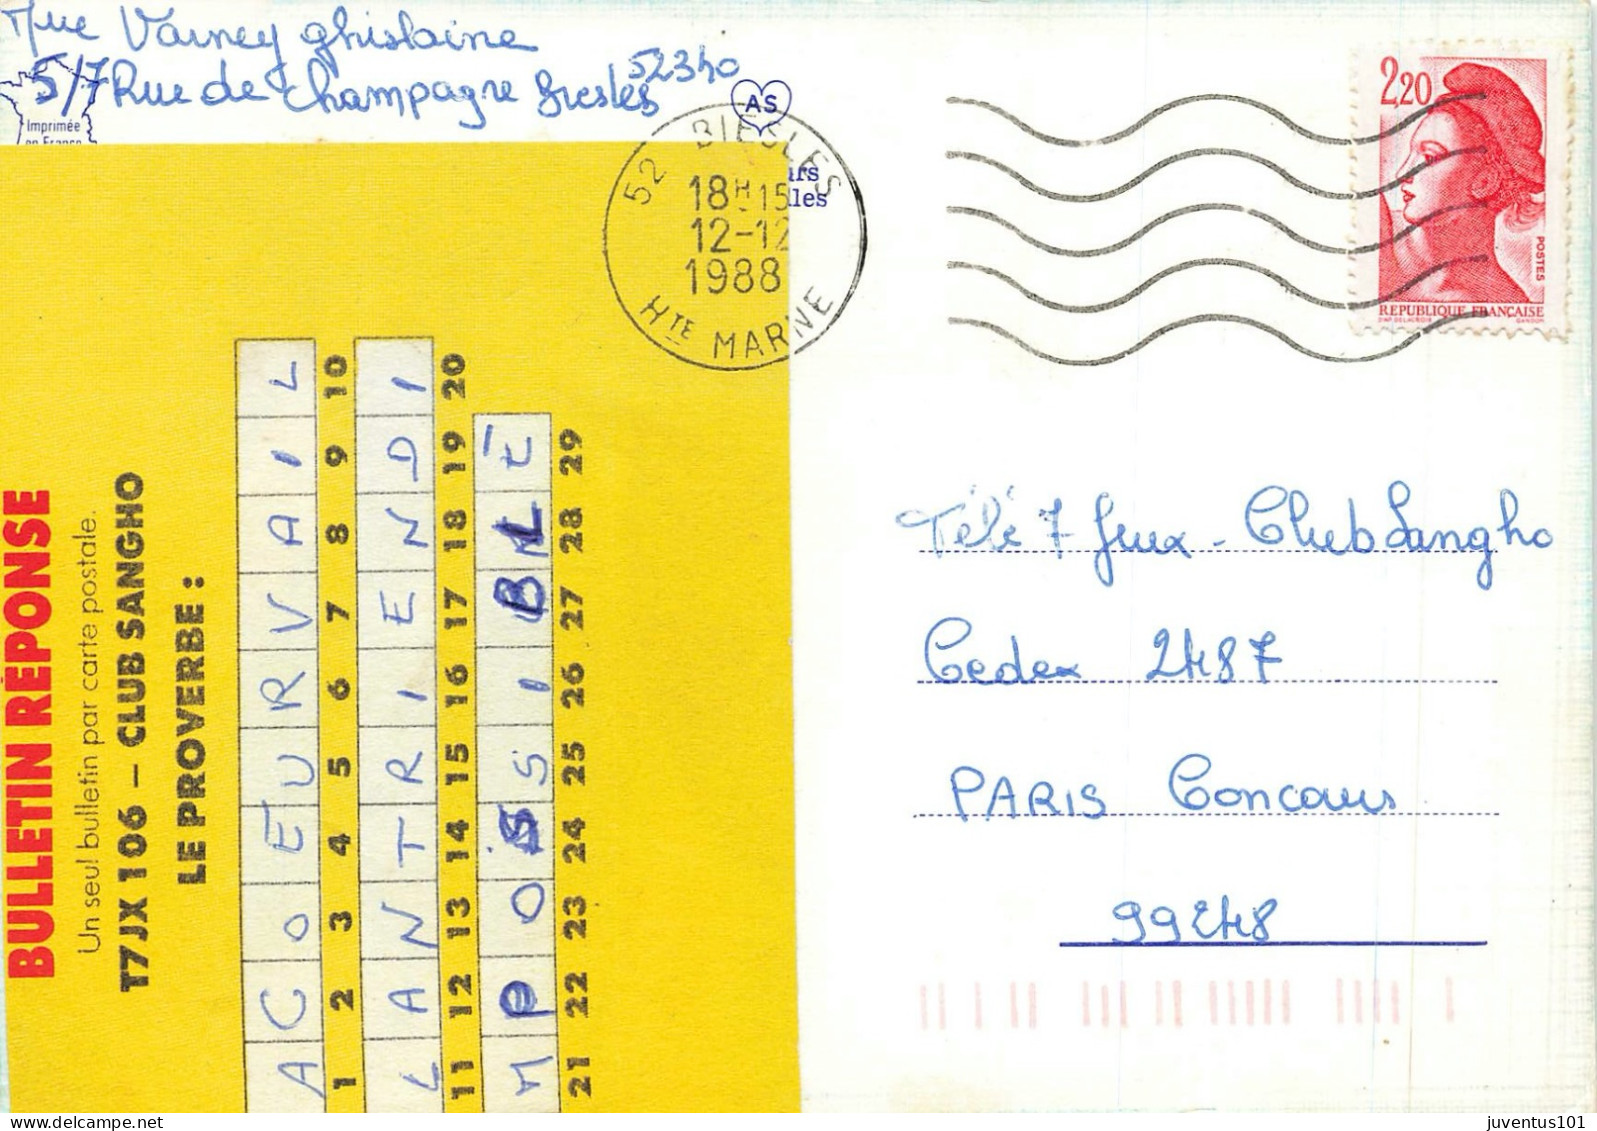 Mue Varney ghislaine
5/7 Rue de Champagne Biesles 52340
Imprimée
en France
AS
urs
lles
52 BIESLES
18H15
12-12
1988
HTE MARNE
2,20
POSTES
REPUBLIQUE FRANÇAISE
D'AP. DELACROIX GANDON
BULLETIN RÉPONSE
Un seul bulletin par carte postale.
T7JX 106 – CLUB SANGHO
LE PROVERBE :
A C O E U R V A I L
1 2 3 4 5 6 7 8 9 10
L A N T R I E N D I
11 12 13 14 15 16 17 18 19 20
M P O S S I B L É
21 22 23 24 25 26 27 28 29
Télé 7 Jeux - Club Sangho
Cedex 2487
PARIS Concours
99248
juventus101